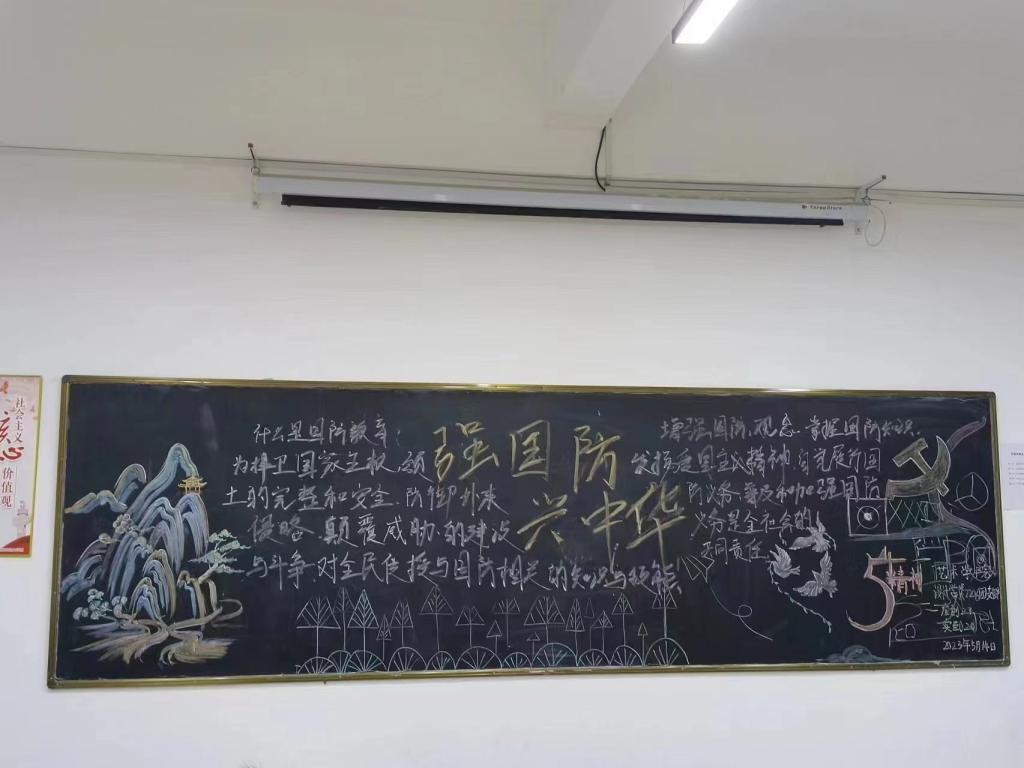 社会主义
核心
价值观
什么是国防教育:
为捍卫国家主权、领
土的完整和安全 防御外来
侵略、颠覆威胁、的建设
与斗争、对全民传授与国防相关的知识与技能
强国防
兴中华
增强国防、观念、掌握国防知识、
发扬爱国主义精神、自觉履行国
防义务 普及和加强国防
义务是全社会的
共同责任
54精神
艺术学院
2023年5月14日